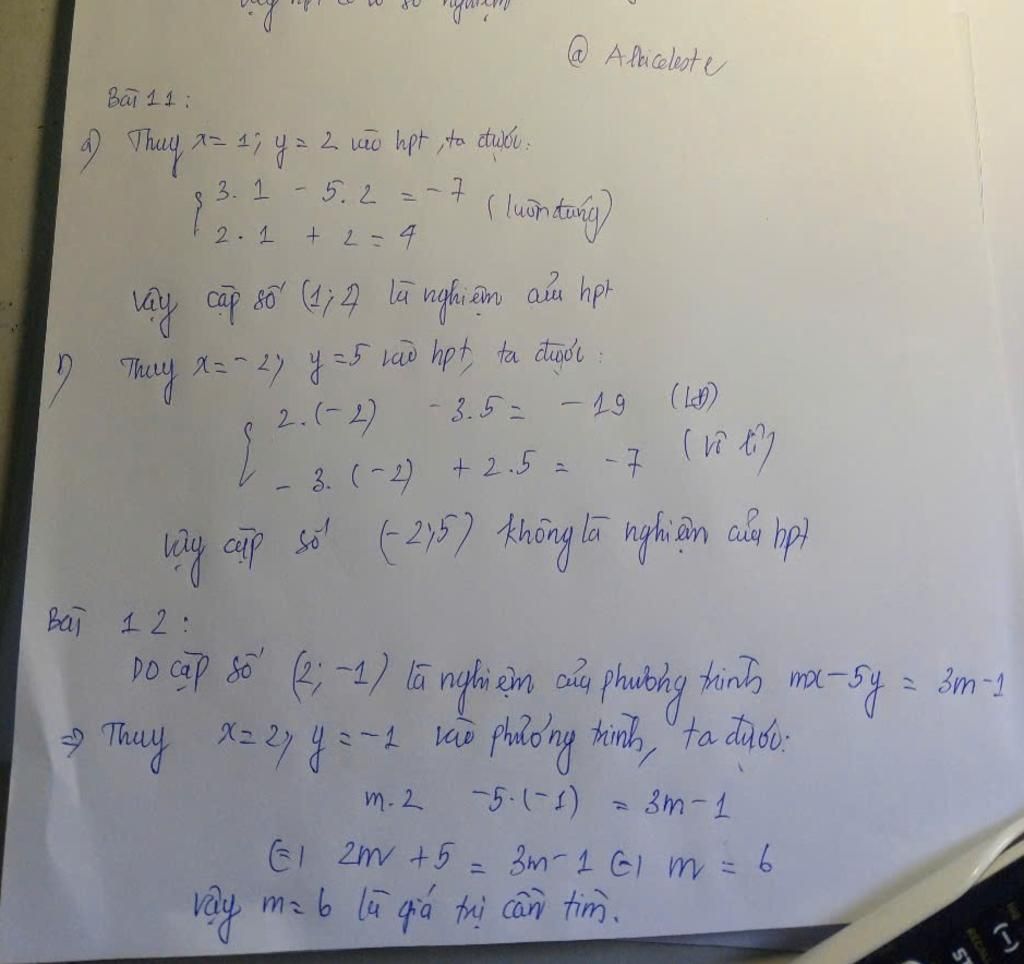 Vậy hpt có vô số nghiệm
@ Albiceleste
Bài 11:
a) Thay x = 1; y = 2 vào hpt, ta được:
{ 3.1 - 5.2 = -7
2.1 + 2 = 4 (luôn đúng)
Vậy cặp số (1; 2) là nghiệm của hpt
b) Thay x = -2; y = 5 vào hpt, ta được:
{ 2.(-2) - 3.5 = -19 (LĐ)
-3.(-2) + 2.5 = -7 (vô lí)
Vậy cặp số (-2; 5) không là nghiệm của hpt
Bài 12:
Do cặp số (2; -1) là nghiệm của phương trình mx - 5y = 3m - 1
=> Thay x = 2; y = -1 vào phương trình, ta được:
m.2 - 5.(-1) = 3m - 1
<=> 2m + 5 = 3m - 1 <=> m = 6
Vậy m = 6 là giá trị cần tìm.
(-)